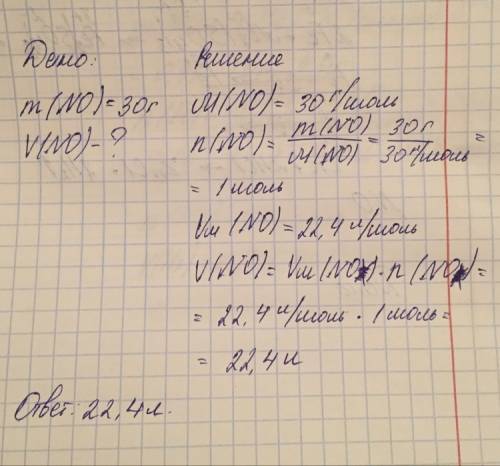 Дано:
Решение
m(NO)=30г
M(NO)=30 г/моль
V(NO)-?
n(NO)= m(NO)/M(NO) = 30г/30 г/моль =
= 1 моль
Vм (NO)=22,4 л/моль
V(NO)= Vм(NO)·n(NO)=
= 22,4 л/моль · 1 моль=
= 22,4 л
Ответ: 22,4 л.